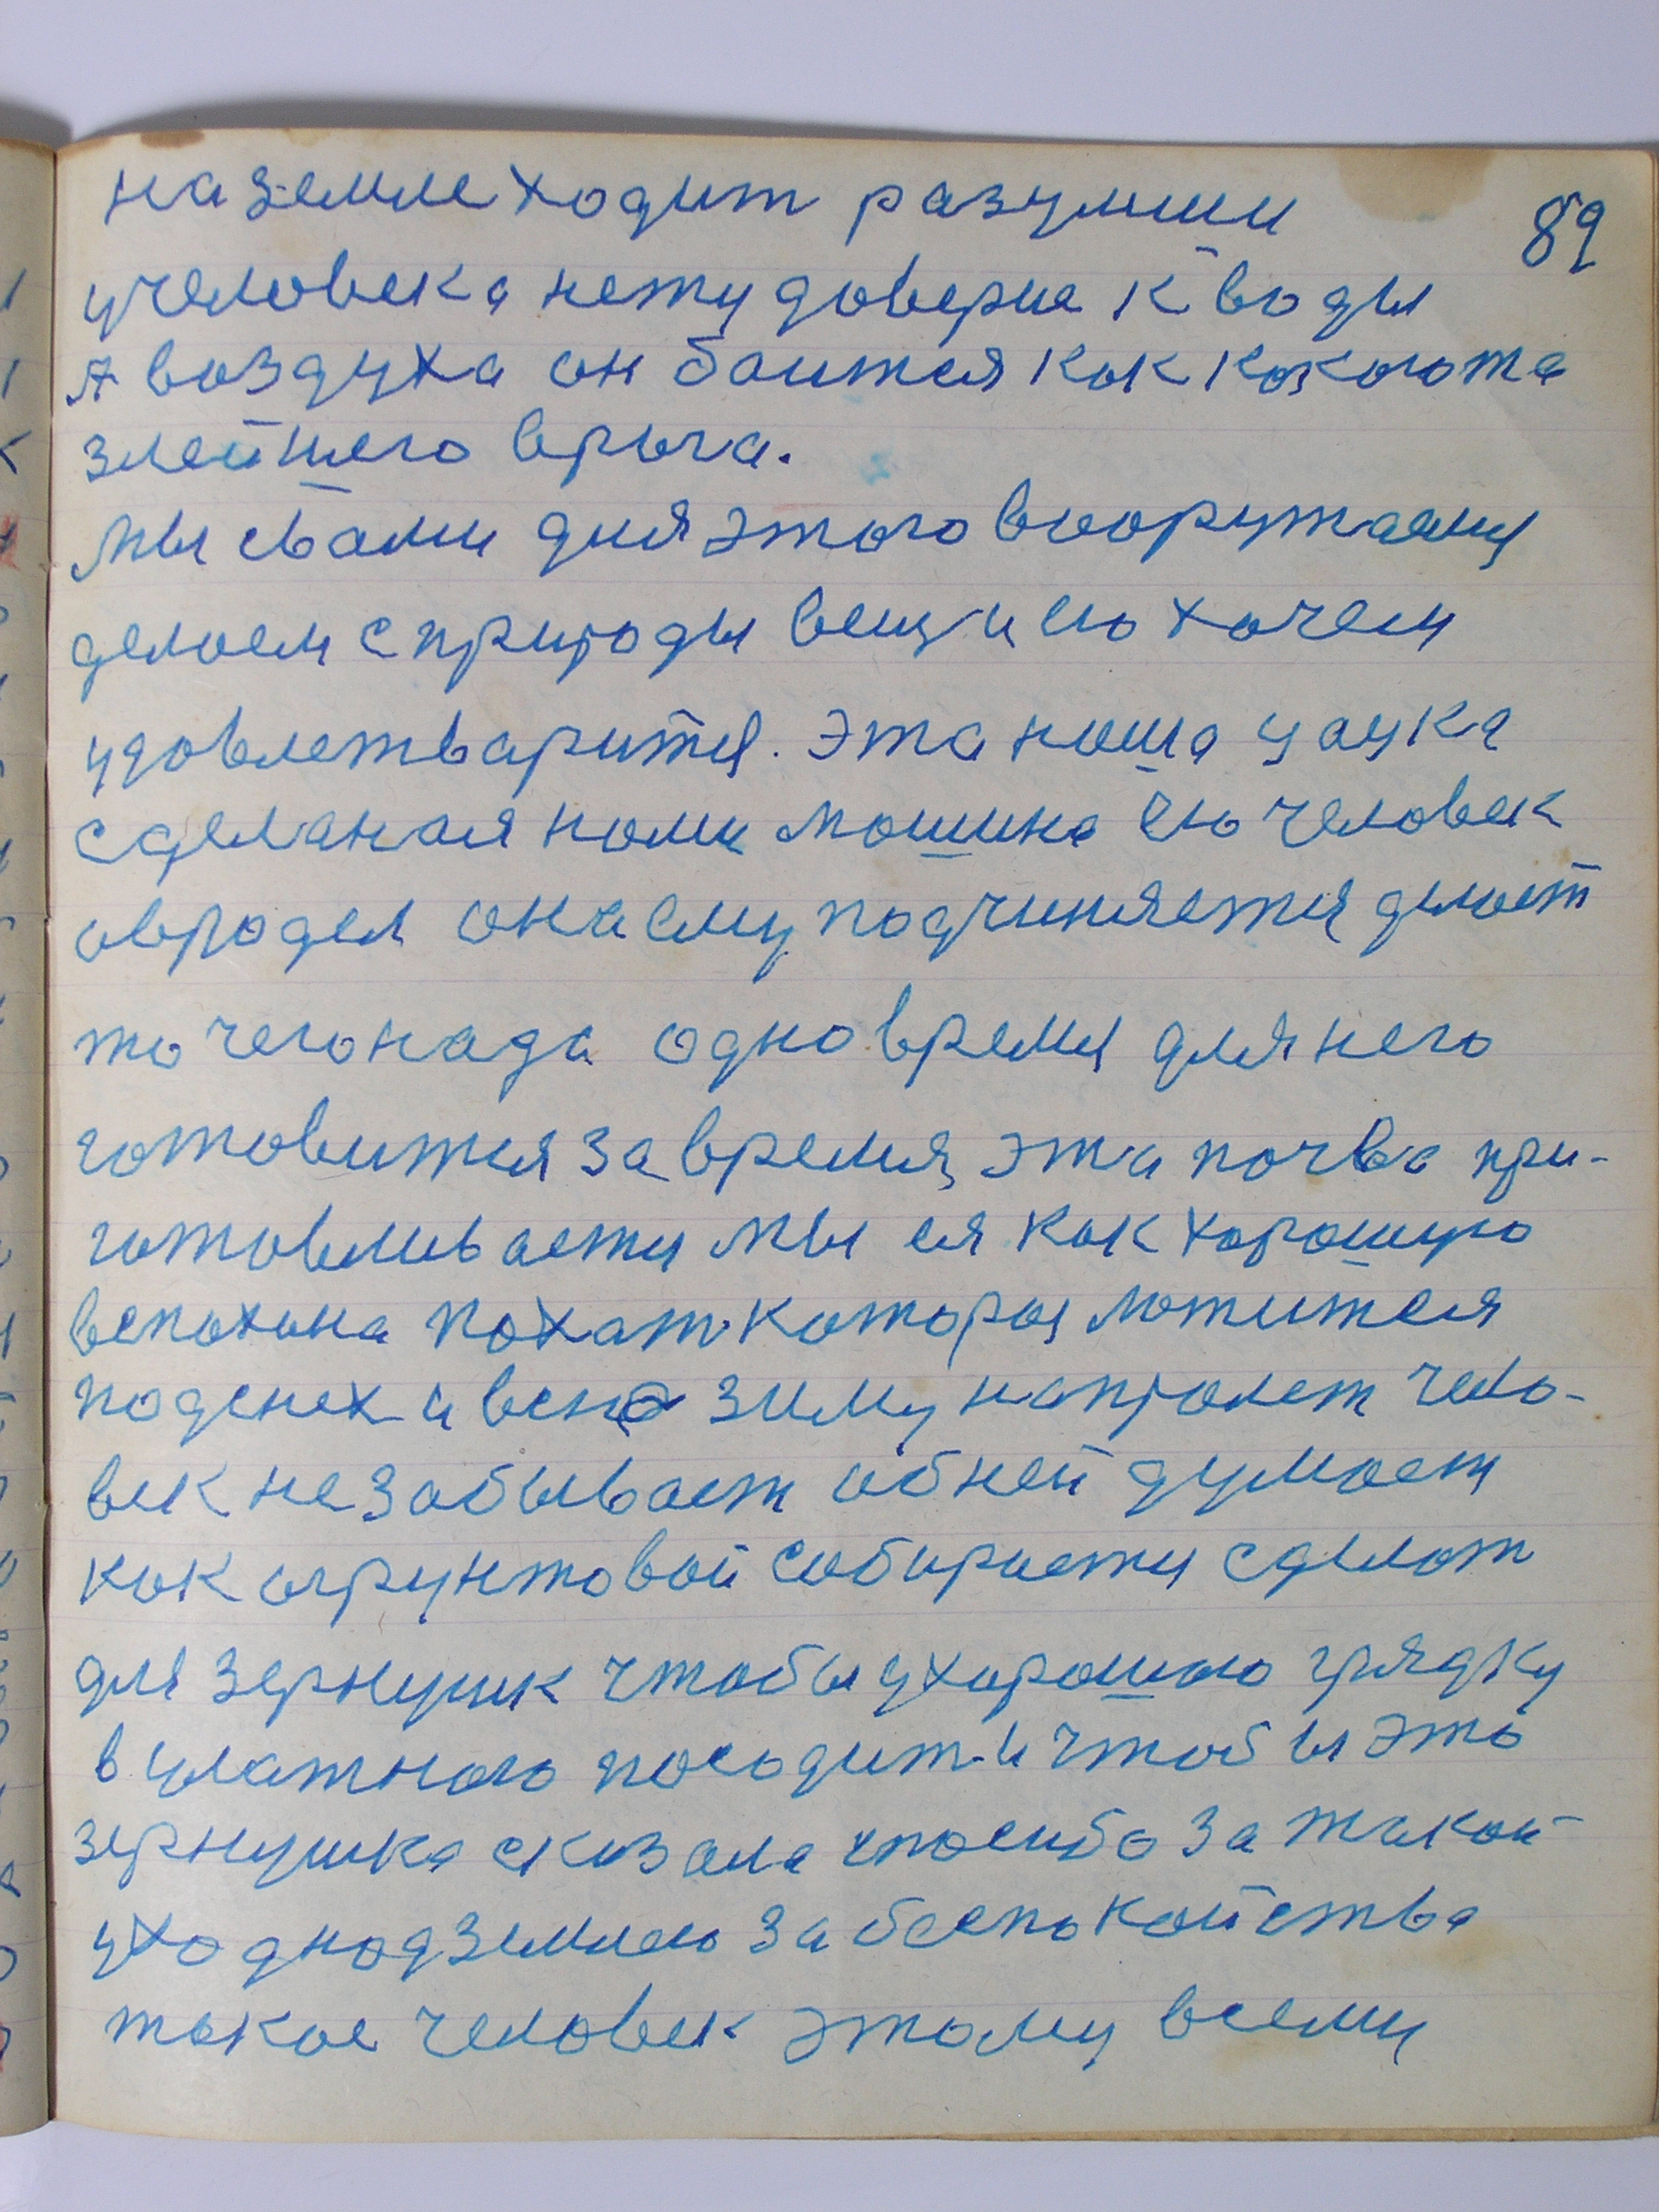 на земле ходит разумни
89
у человека нету доверие к воды
А воздуха он боится как какогота
злейшего врага.
Мы свами для этого вооружаемц
делаем с природы вещи ею хочем
удовлетварится. Эта наша наука
сделаная нами машина ею человек
оврадел она ему подчиняетця делает
то чего нада одно время для него
готовится за время, эта почва при-
готовливаетц мы ея как хорошую
вспохана пахат. которая ложится
под снех и всю зиму напролет чело-
век не забывает об ней думает
как огрунтовой собираетц сделат
для зернушек чтобы ухорошою грядку
в улажного посадит. и чтобы это
зернушка сказала спасиба за такой
уход надземлею за беспокойства
такое человек этому всему